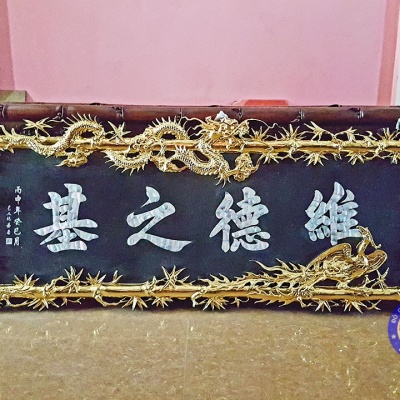 維德之基
丙申年癸巳月